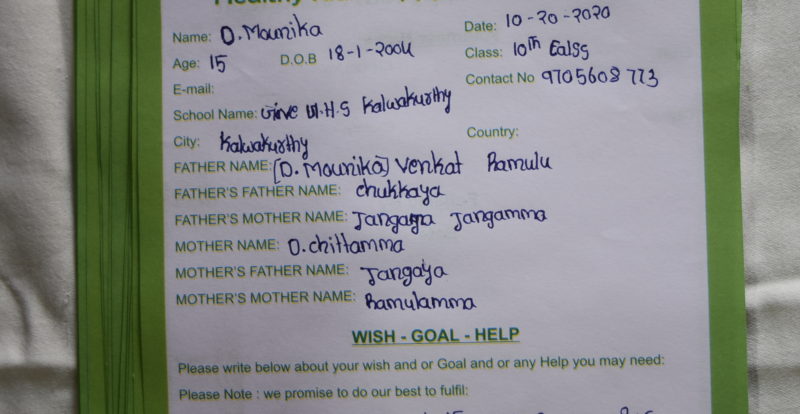 Name: D. Mounika Date: 10-20-2020
Age: 15 D.O.B 18-1-2004 Class: 10th Ealss
E-mail: Contact No 9705608773
School Name: H.S Kalwakurthy
City: Kalwakurthy Country:
FATHER NAME: [D. Mounika] Venkat Ramulu
FATHER'S FATHER NAME: Chukkaya
FATHER'S MOTHER NAME: Jangama Jangamma
MOTHER NAME: D. chittamma
MOTHER'S FATHER NAME: Jangaya
MOTHER'S MOTHER NAME: Ramulamma
WISH - GOAL - HELP
Please write below about your wish and or Goal and or any Help you may need:
Please Note : we promise to do our best to fulfil: